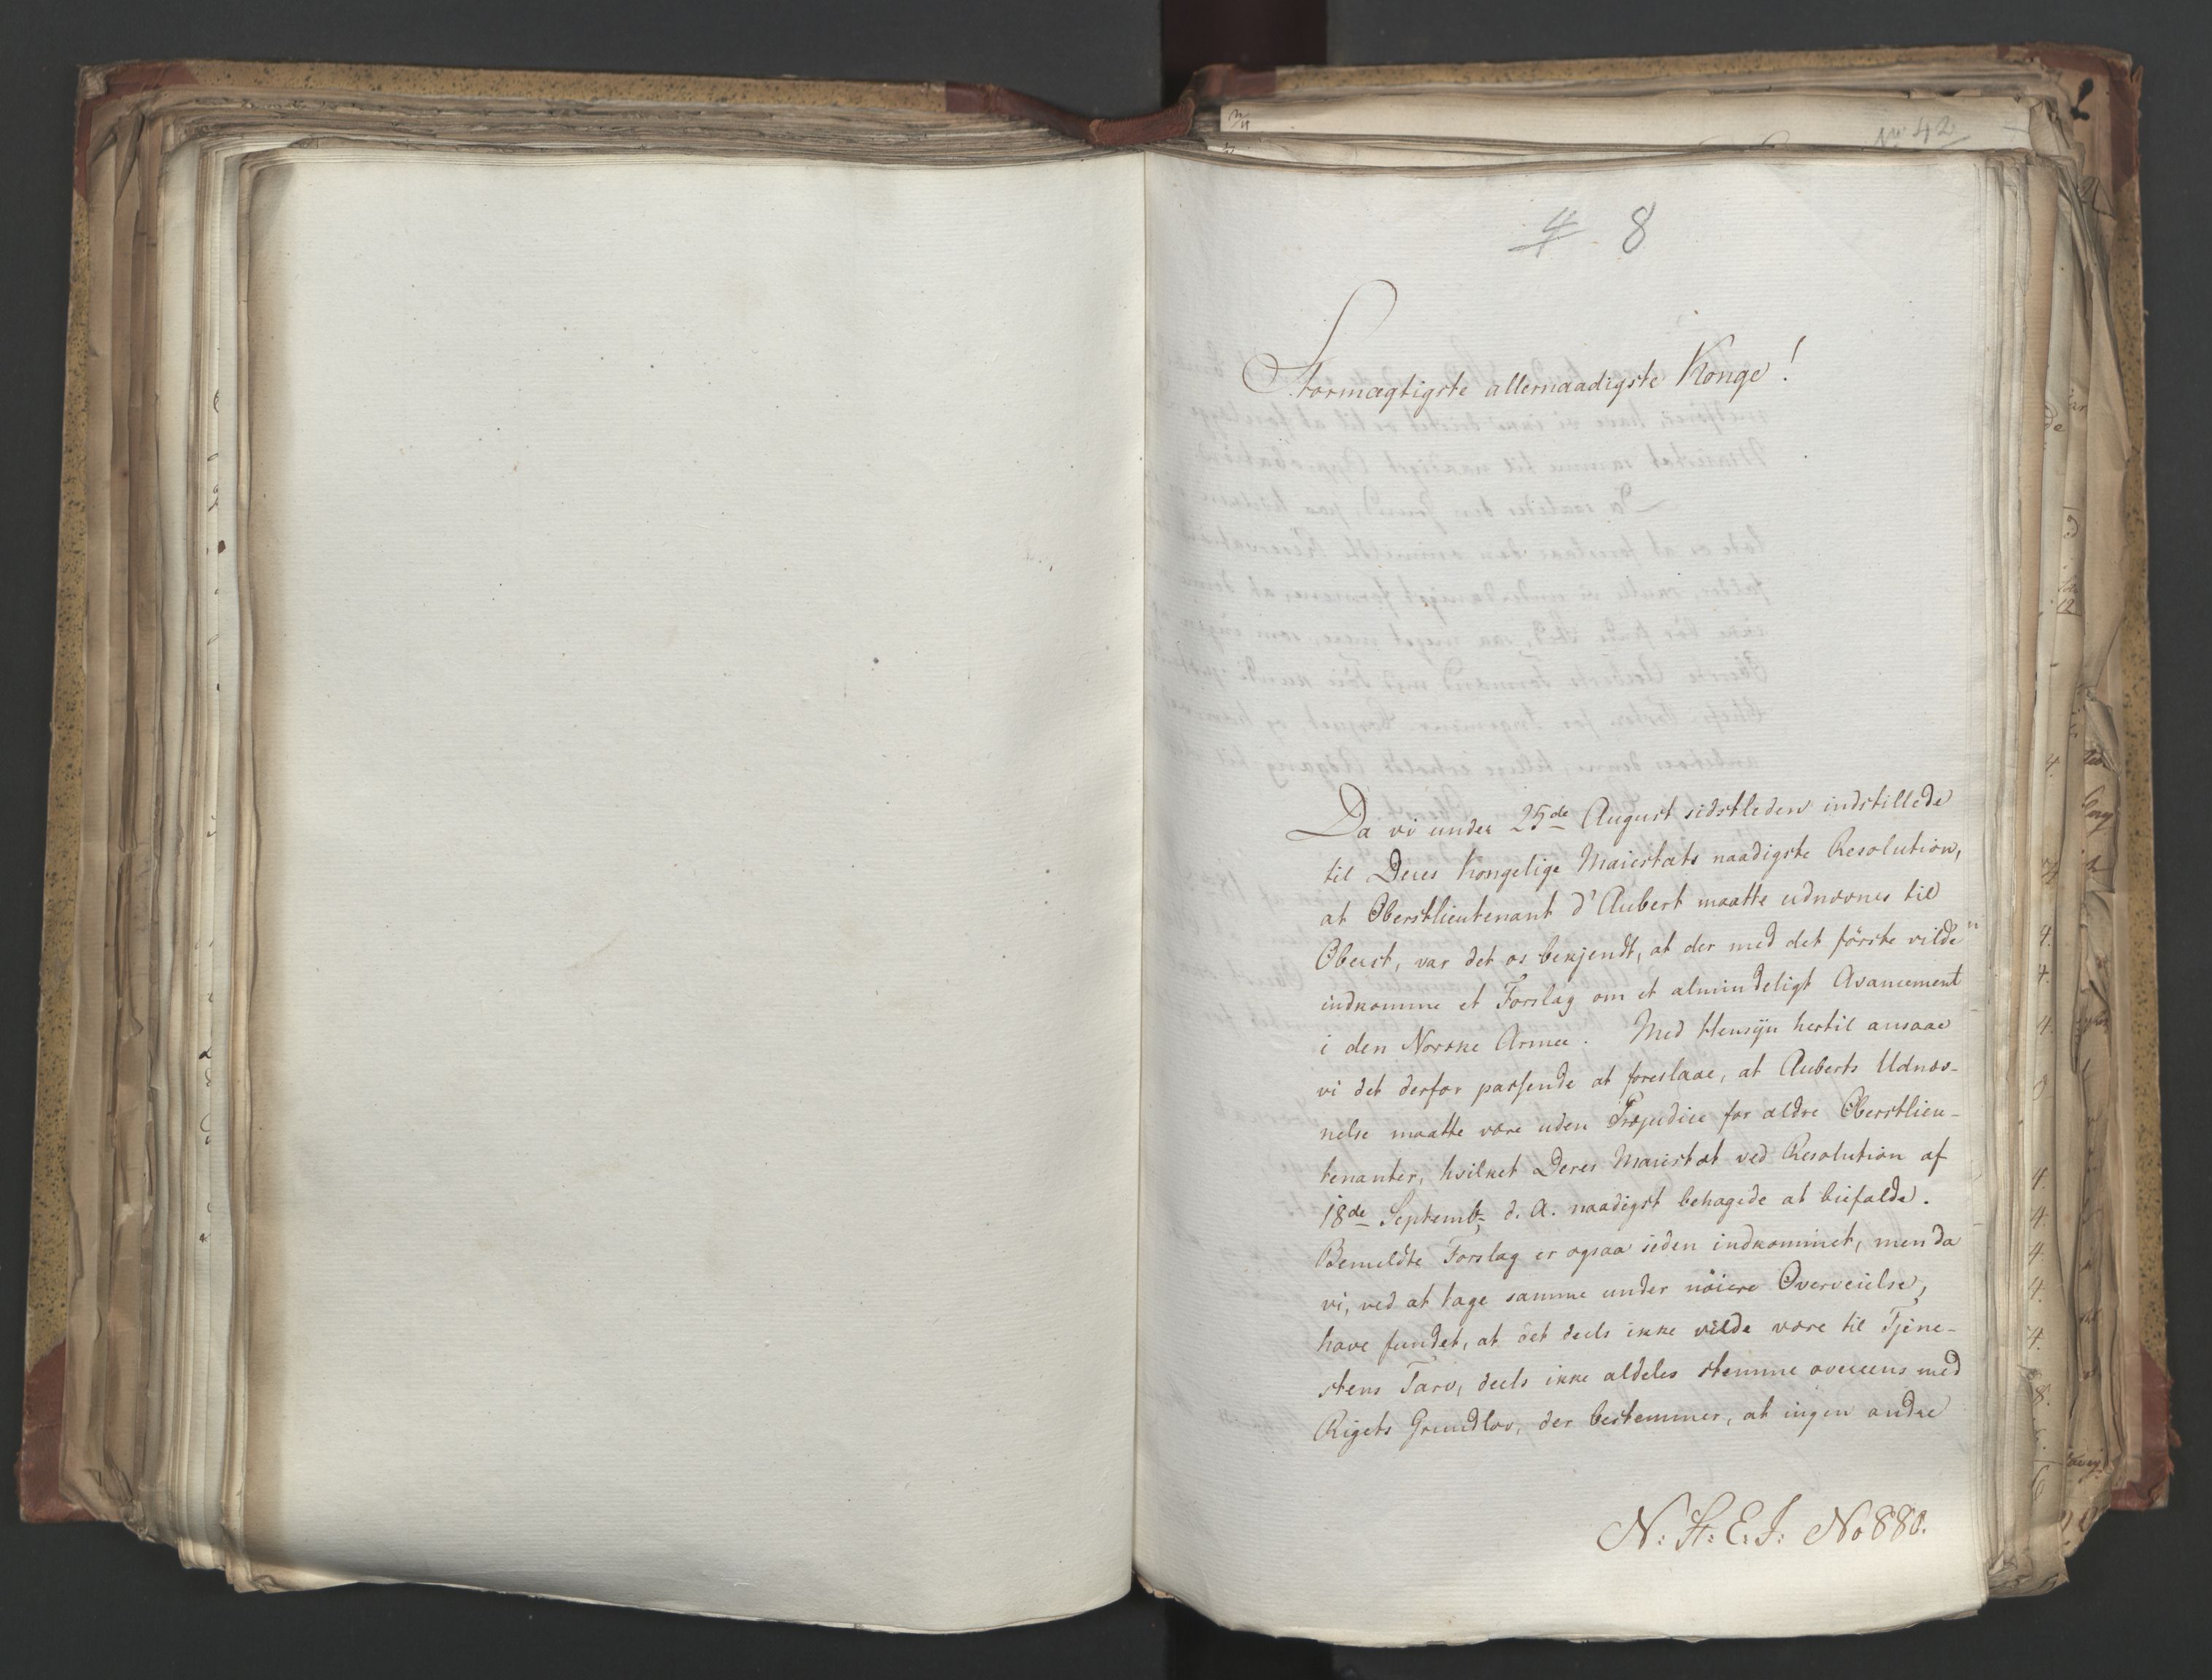 No 42
4 8
Stormægtigste allernaadigste Konge!
Da vi under 25de August sidstleden indstillede
til Deres Kongelige Maiestæts naadigste Resolution,
at Oberstlieutenant d'Aubert maatte udnævnes til
Oberst, var det os bekjendt, at der med det første vilde
indkomme et Forslag om et almindeligt Avancement
i den Norske Armee. Med Hensyn hertil ansaae
vi det derfor passende at foreslaae, at Auberts Udnæv-
nelse maatte være uden Præjudice for ældre Oberstlieu-
tenanter, hvilket Deres Maiestæt ved Resolution af
18de Septembr d. A. naadigst behagede at biefalde.
Bemeldte Forslag er ogsaa siden indkommet, men da
vi, ved at tage samme under nöiere Overveielse,
have fundet, at det deels ikke vilde være til Tjene-
stens Tarv, deels ikke aldeles stemme overeens med
Rigets Grundlov, der bestemmer, at ingen andre
N: St: E: J: No 880.